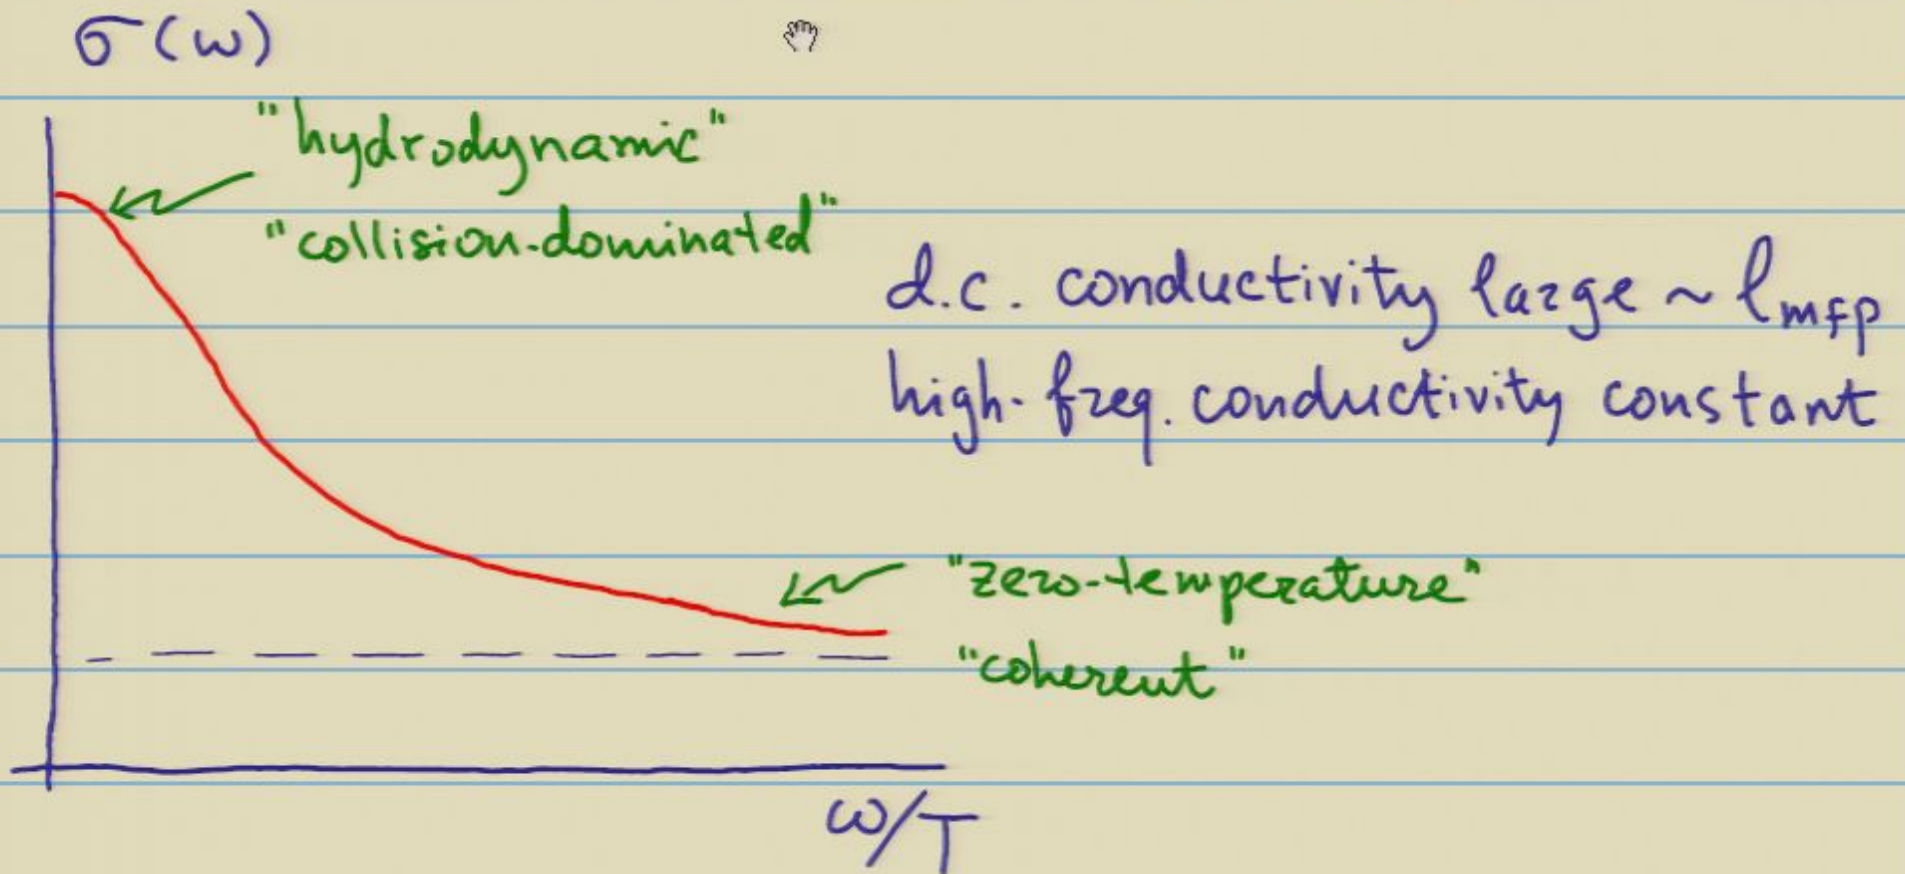 σ(ω)
"hydrodynamic"
"collision-dominated"
d.c. conductivity large ~ lmfp
high-freq. conductivity constant
"zero-temperature"
"coherent"
ω/T